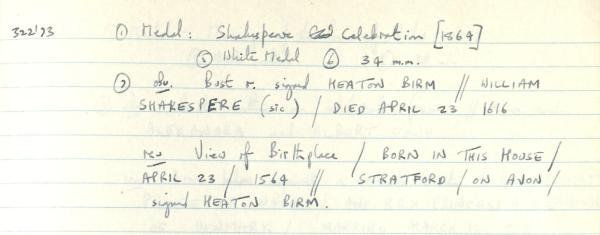 322'73 ① Medal: Shakspere Celebration [1864]
⑤ White Metal ⑥ 34 m.m.
⑦ obv. Bust r. signed HEATON BIRM // WILLIAM
SHAKESPERE (sic) / DIED APRIL 23 1616
rev View of Birthplace / BORN IN THIS HOUSE /
APRIL 23 / 1564 // STRATFORD / ON AVON /
signed HEATON BIRM.